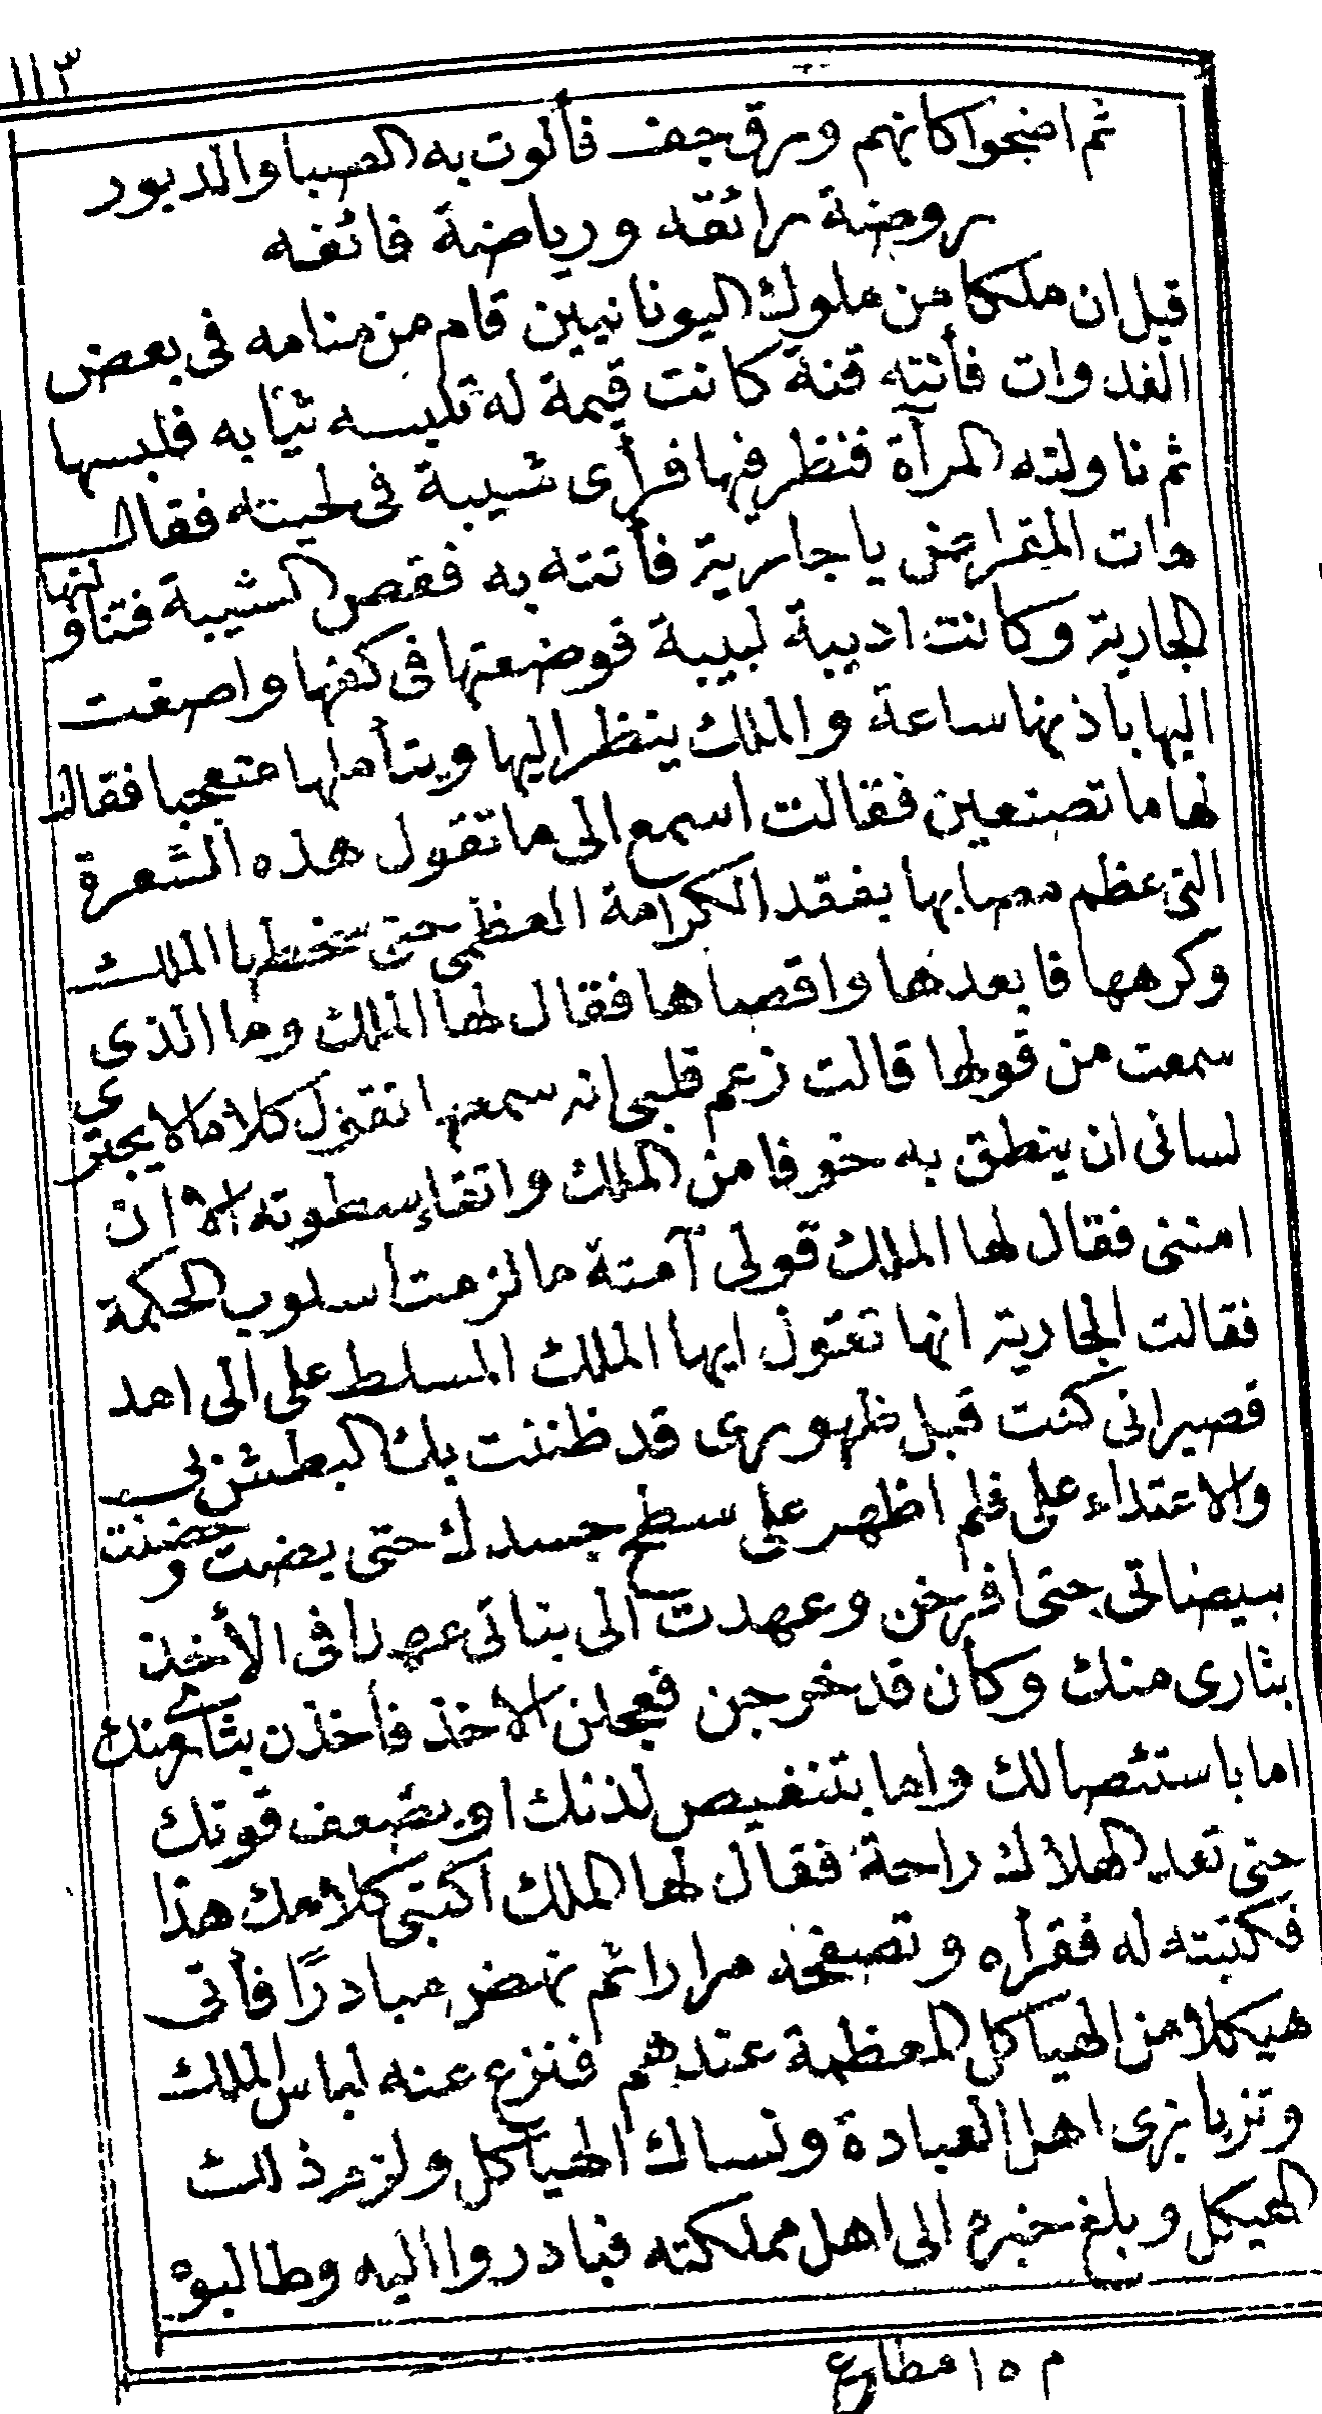 ١١٣
ثم اضحوا كانهم ورق جف فألوت به الصبا والدبور
روضة رائقه ورياضة فائقه
قيل ان ملكا من ملوك اليونانيين قام من منامه فى بعض
الغدوات فأتته قنة كانت قيمة له تلبسه ثيابه فلبسها
ثم ناولته المرآة فنظر فيها فرأى شيبة فى لحيته فقال
هات المقراض يا جارية فأتته به فقص الشيبة فتناولتها
الجارية وكانت اديبة لبيبة فوضعتها فى كفها واصغت
اليها باذنها ساعة والملك ينظر اليها ويتأملها متعجبا فقال
لها ما تصنعين فقالت اسمع الى ما تقول هذه الشعرة
التى عظم مصابها بفقد الكرامة العظمى حتى سخطها الملك
وكرهها فابعدها واقصاها فقال لها الملك وما الذى
سمعت من قولها قالت زعم قلبى انه سمعها تقول كلاما لا يجترى
لسانى ان ينطق به خوفا من الملك واتقاء سطوته الا ان
امننى فقال لها الملك قولى آمنة ما لزمت اسلوب الحكمة
فقالت الجارية انها تقول ايها الملك المسلط على الى امد
قصير انى كنت قبل ظهورى قد ظننت بك البطش بى
والاعتداء على فلم اظهر على سطح جسدك حتى بضت وحضنت
بيضاتى حتى افرخن وعهدت الى بناتى عهدا فى الأخذ
بثارى منك وكأن قد خرجن فعجلن الاخذ فأخذن بثارى منك
اما باستئصالك واما بتنغيص لذتك او بضعف قوتك
حتى تعد الهلاك راحة فقال لها الملك اكتبى كلامك هذا
فكتبته له فقرأه وتصفحه مرارا ثم نهض مبادرًا فأتى
هيكلا من الهياكل المعظمة عندهم فنزع عنه لباس الملك
وتزيا بزى اهل العبادة ونساك الهياكل ولزم ذلك
الهيكل وبلغ خبره الى اهل مملكته فبادروا اليه وطالبوه
م ١٥ مطارع